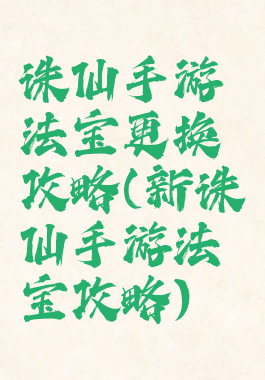 诛仙手游
法宝更换
攻略(新诛
仙手游法
宝攻略)